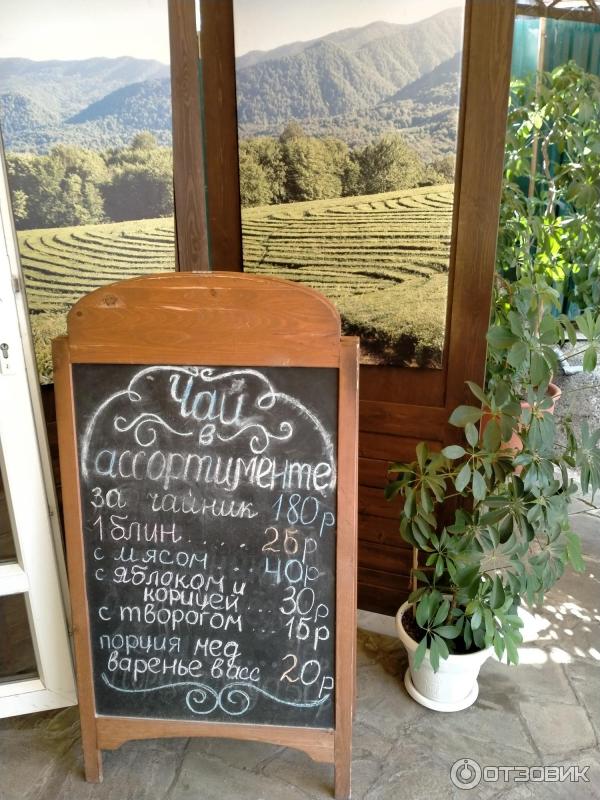 Чай
в
ассортименте
за чайник 180р
1 блин..... 25р
с мясом... 40р
с яблоком и
корицей... 30р
с творогом... 15р
порция мед
варенье в асс 20р
ОТЗОВИК